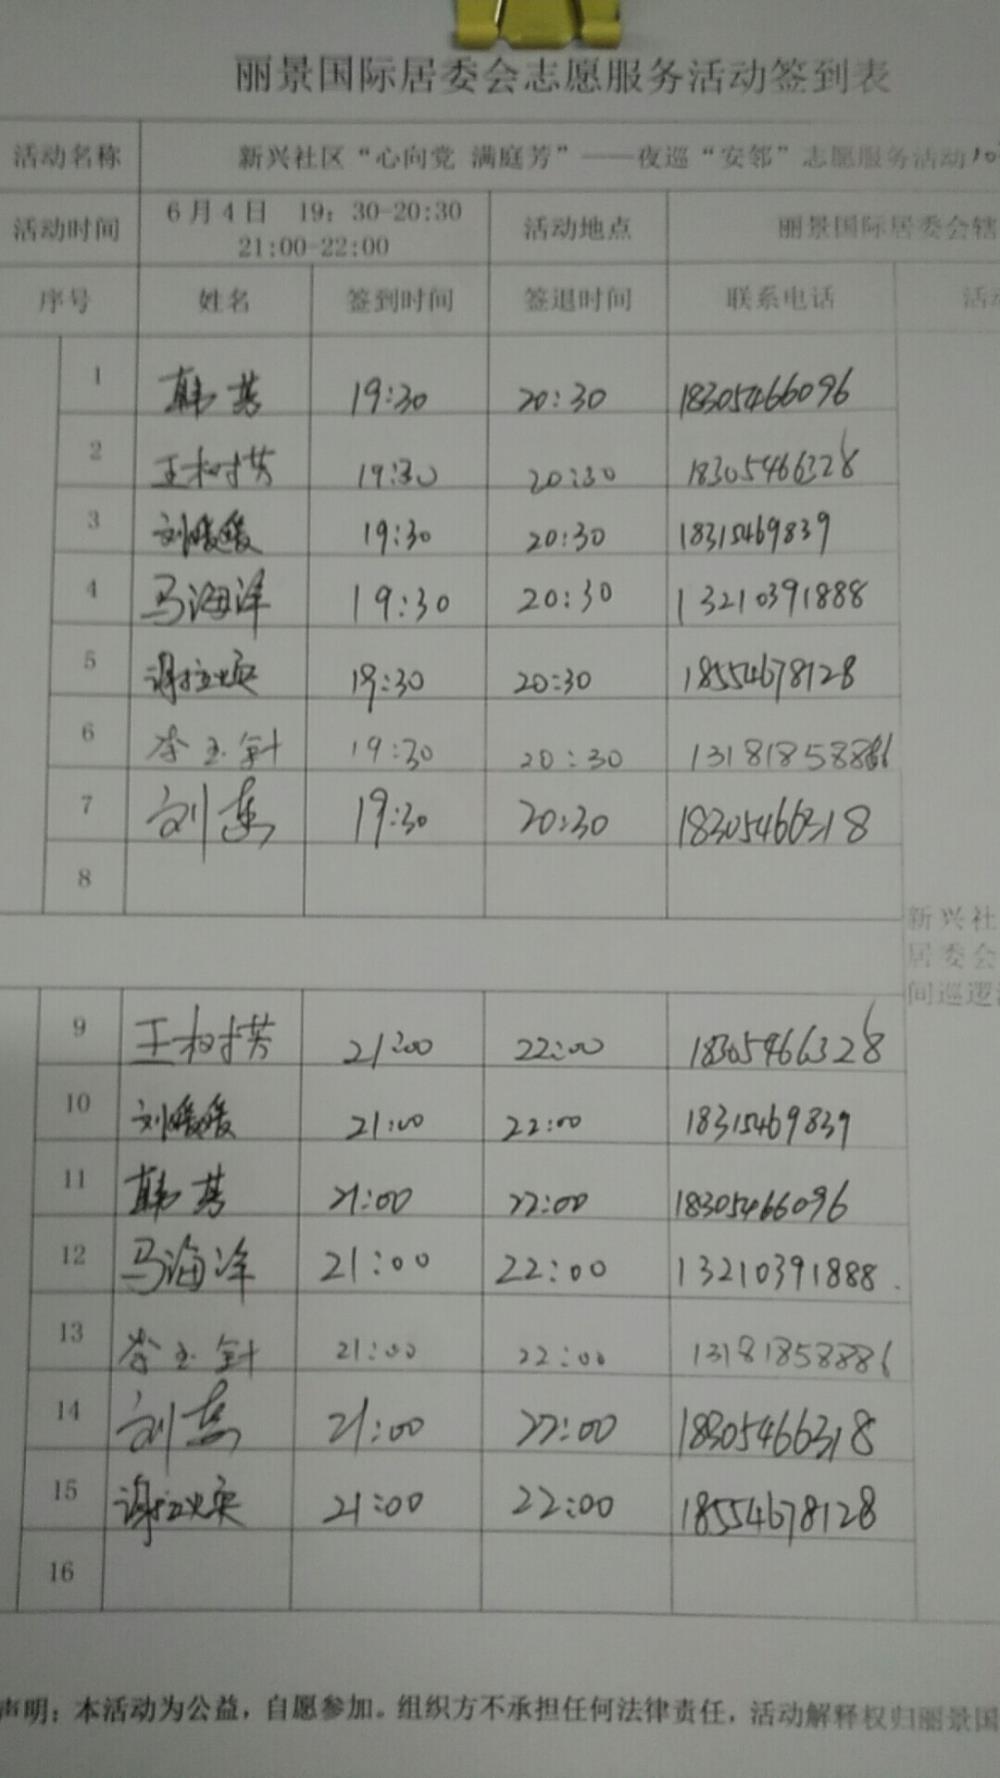 丽景国际居委会志愿服务活动签到表
活动名称 新兴社区“心向党 满庭芳”——夜巡“安邻”志愿服务活动10
活动时间 6月4日 19：30-20:30 活动地点 丽景国际居委会辖
21:00-22:00
序号 姓名 签到时间 签退时间 联系电话 活动
1 韩芳 19:30 20:30 18305466096
2 王树芳 19:30 20:30 18305466328
3 刘媛媛 19:30 20:30 18315469839
4 马海洋 19:30 20:30 13210391888
5 19:30 20:30 18554678128
6 李玉针 19:30 20:30 13181858886
7 刘燕 19:30 20:30 18305466318
8
新兴社
居委会
间巡逻
9 王树芳 21:00 22:00 18305466328
10 刘媛媛 21:00 22:00 18315469839
11 韩芳 21:00 22:00 18305466096
12 马海洋 21:00 22:00 13210391888
13 李玉针 21:00 22:00 13181858886
14 刘燕 21:00 22:00 18305466318
15 21:00 22:00 18554678128
16
声明：本活动为公益，自愿参加。组织方不承担任何法律责任，活动解释权归丽景国